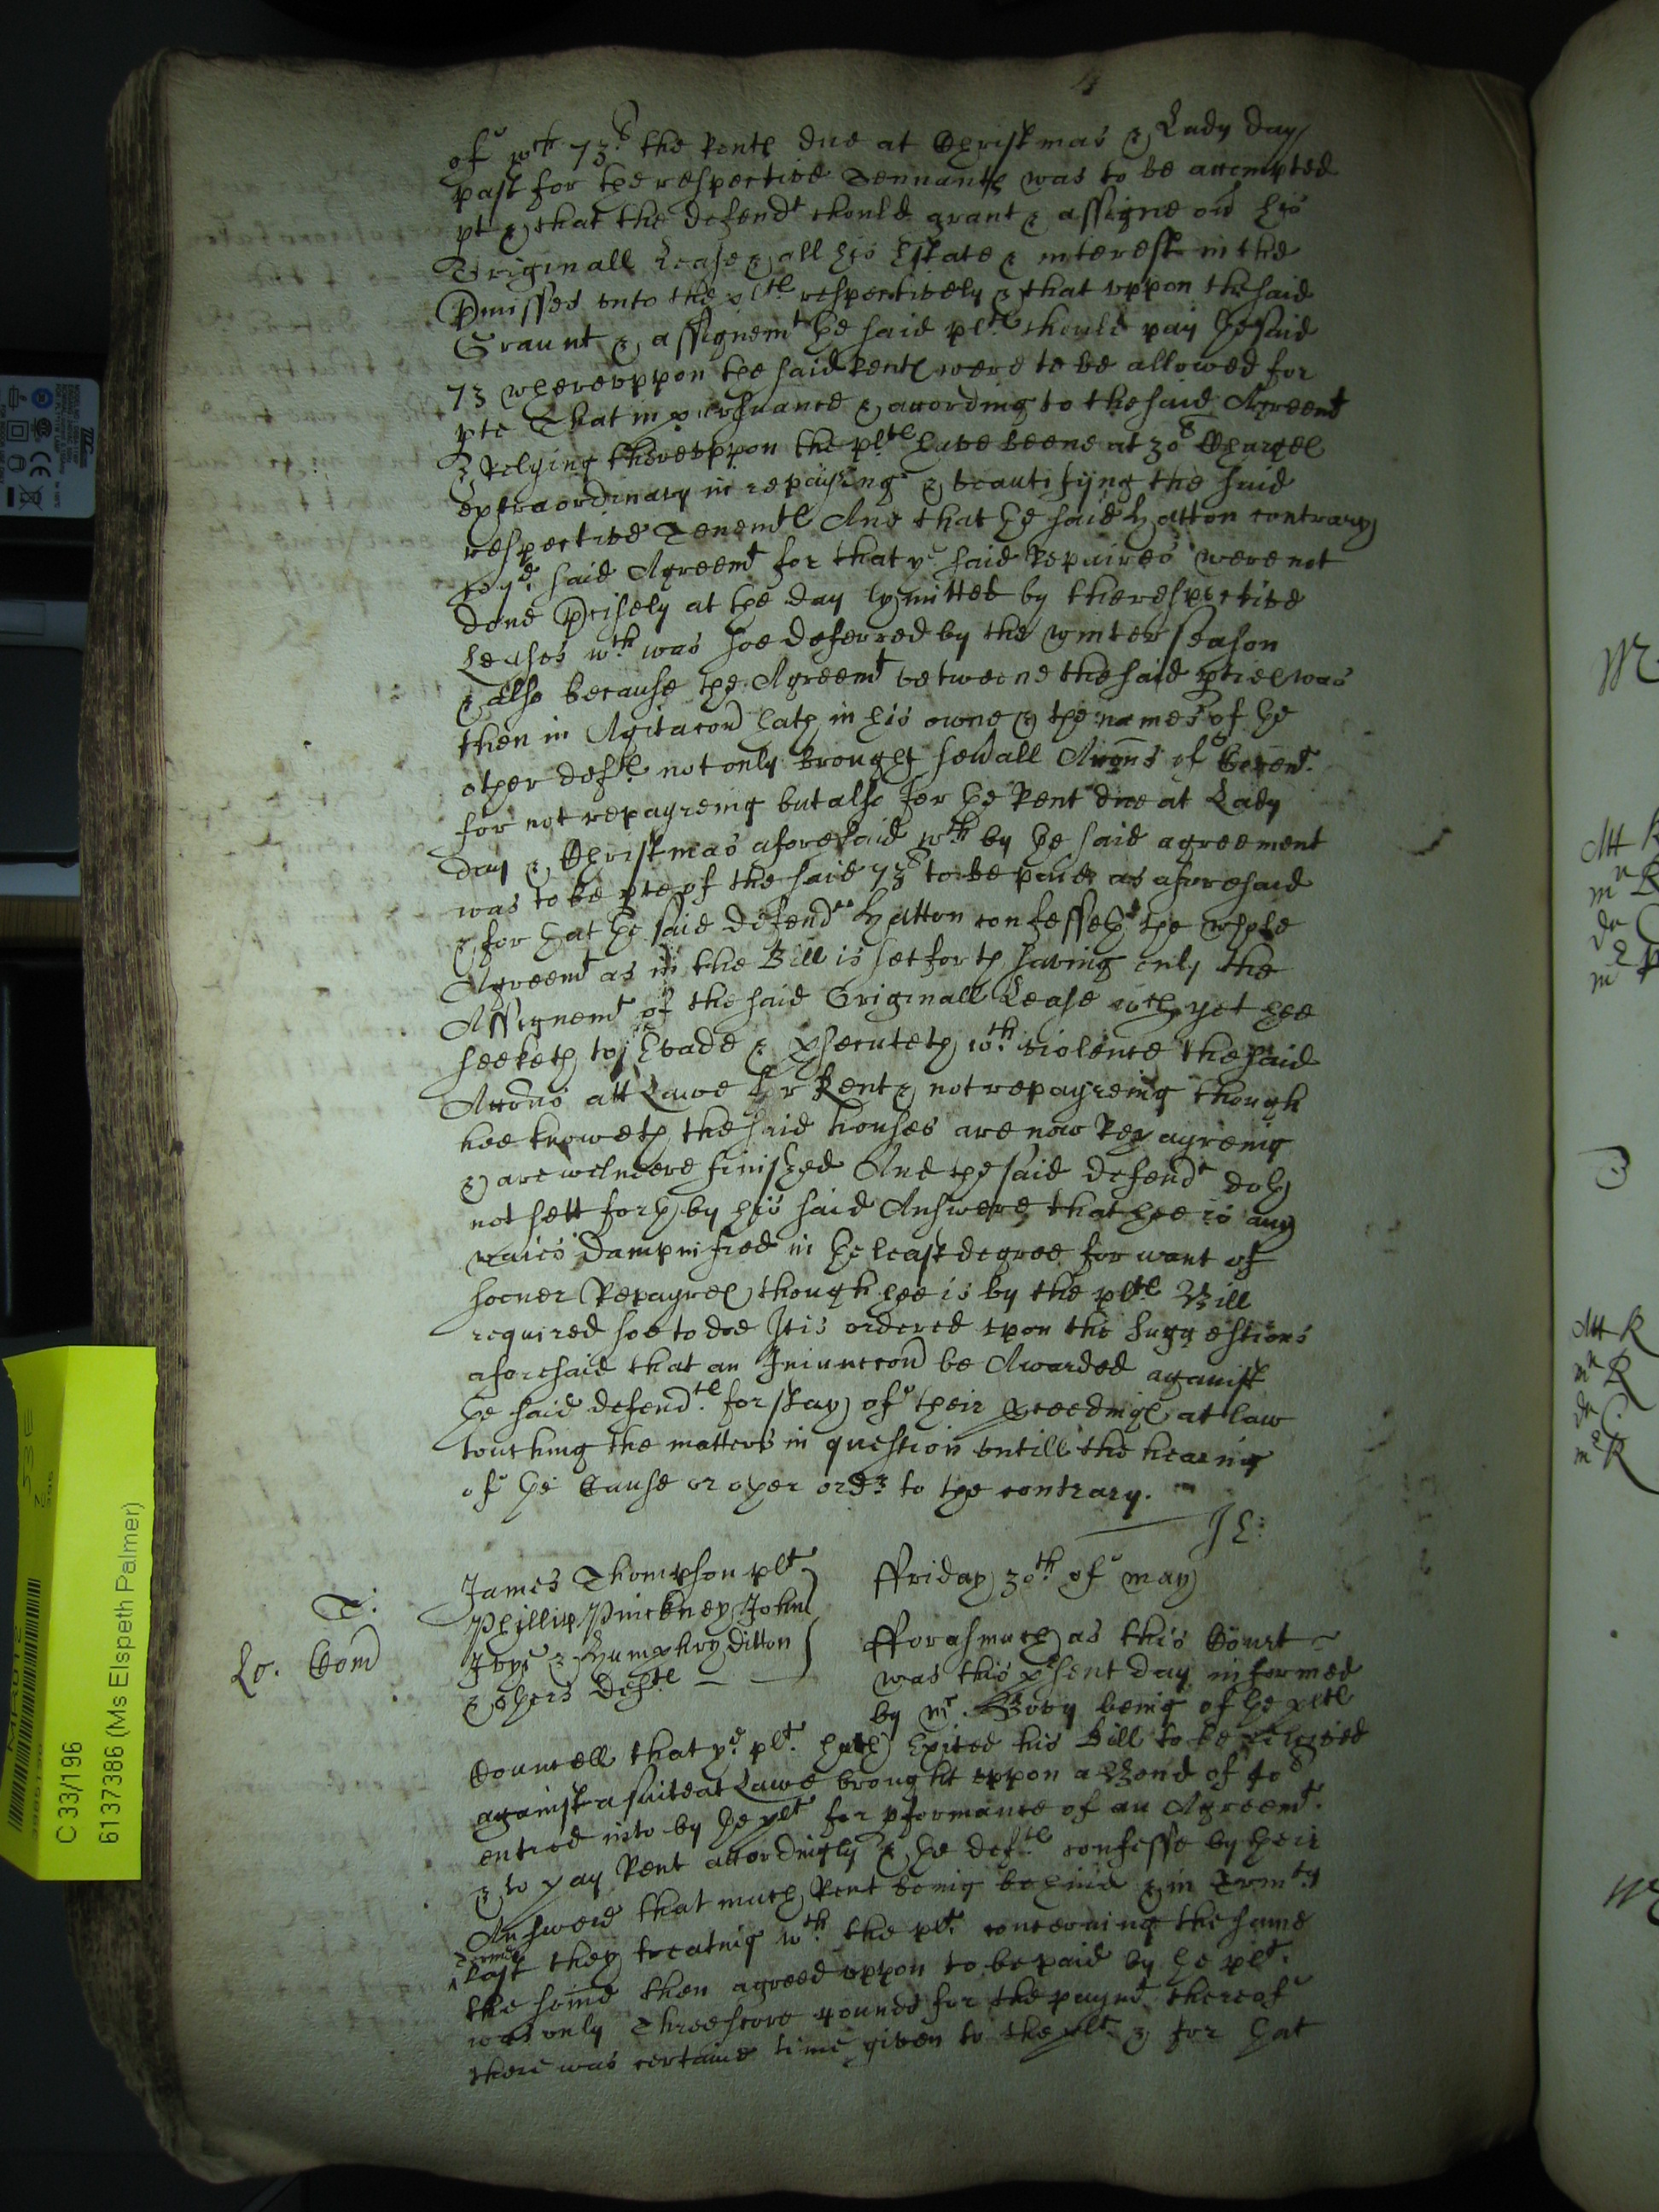 of wch 73s the Rente due at Christmas & Lady day
past for the respective Tennante was to be accompted
pt & that the defendt should grant & assigne ov his
Originall Lease & all his Estate & interest in the
Pmisses unto the plte respectively & that uppon the said
Graunt & assignemt the said plte should pay the said
73 whereuppon the said Rente were to be allowed for
pte That in pursuance & according to the said Agreemt
& Relying thereuppon the plte have beene at 30s Charges
extraordinary in repayring & beautifying the said
respective Tenemte And that the said Hatton contrary
to ye said Agreemt for that ye said Repaires were not
done Pcisely at the day lymitted by the respective
Leases wch was soe deferred by the winter season
& also because the Agreemt betweene the said pties was
then in Agitacon hath in his owne & the names of the
other defte not only brought sevall Accons of Covent
for not repayreing but also for the Rent due at Lady
day & Christmas aforesaid wch by the said agreement
was to be pte of the said 73s to be paid as aforesaid
& for that the said defendt Hatton confesseth the whole
Agreemt as in the Bill is set forth saving only the
Assignemt of the said Originall Lease yet hee
seeketh to Evade & psecuteth wth violence the said
Accons att Lawe for Rent & not repayreing though
hee knoweth the said houses are now Repayreing
& are wel neere finished And the said defendt doth
not sett forth by his said Answere that hee is any
waies dampnified in the least degree for want of
sooner Repayres though hee is by the plte Bill
required soe to doe It is ordered upon the suggestions
aforesaid that an Iniuncon be Awarded against
the said defendte for stay of their pceedinge at law
touching the matters in question untill the hearing
of the Cause or other ordr to the contrary.
T:
Lo. Com
James Thompson plt
Phillip Pinckney John
Joye & Humphry Ditton
& others Defte
ffriday 30th of may
fforasmuch as this Court
was this psent day informed
by mr. being of the plte
Councell that ye plt hath Exited his Bill to be releived
against a suite at Lawe brought uppon a Bond of 40
entred into by the plt for pformance of an Agreemt
& to pay Rent accordingly & the defte confesse by their
Answere that much Rent being behind & in Trinity
Terme
last they treating wth the plt concerning the same
the same then agreed uppon to be paid by the plt
was only Threescore pounds for the paymt thereof
there was certaine time given to the plt & for that
C 33/196
6137386 (Ms Elspeth Palmer)